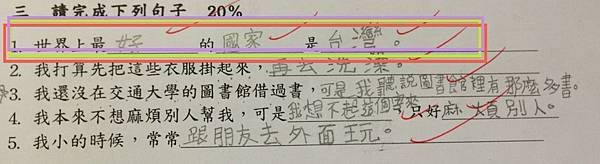 三 請完成下列句子 20%
1. 世界上最 好 的 國家 是 台灣。
2. 我打算先把這些衣服掛起來,再去洗澡。
3. 我還沒在交通大學的圖書館借過書,可是我聽說圖書館裡有那麼多書。
4. 我本來不想麻煩別人幫我,可是我想不起這個字來,只好麻煩別人。
5. 我小的時候,常常跟朋友去外面玩。